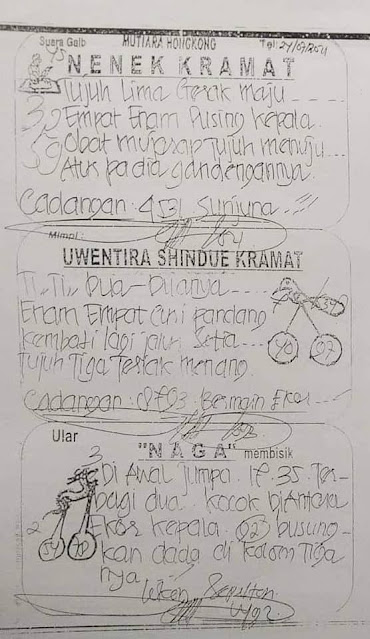 Suara Gaib MUTIARA HONGKONG Tgl: 24/07/2021
NENEK KRAMAT
Tujuh Lima Gerak maju
Empat Enam Pusing kepala
Obat mujarap Tujuh menuju
Atur pa dia gandengannya
Cadangan: 4531 Sunjuna
Mimpi:
UWENTIRA SHINDUE KRAMAT
Ti.. Ti.. Dua-Duanya
Enam Empat Cuni pandang
kembali lagi jalur Setia
Tujuh Tiga Teriak menang
Cadangan: Beringin Ekor
Ular
"NAGA" membisik
Di Awal Jumpa. 17.35. Ter-
bagi dua kocok diAntara
Ekor kepala. 023 busung-
kan dada di kolom Tiga
nya